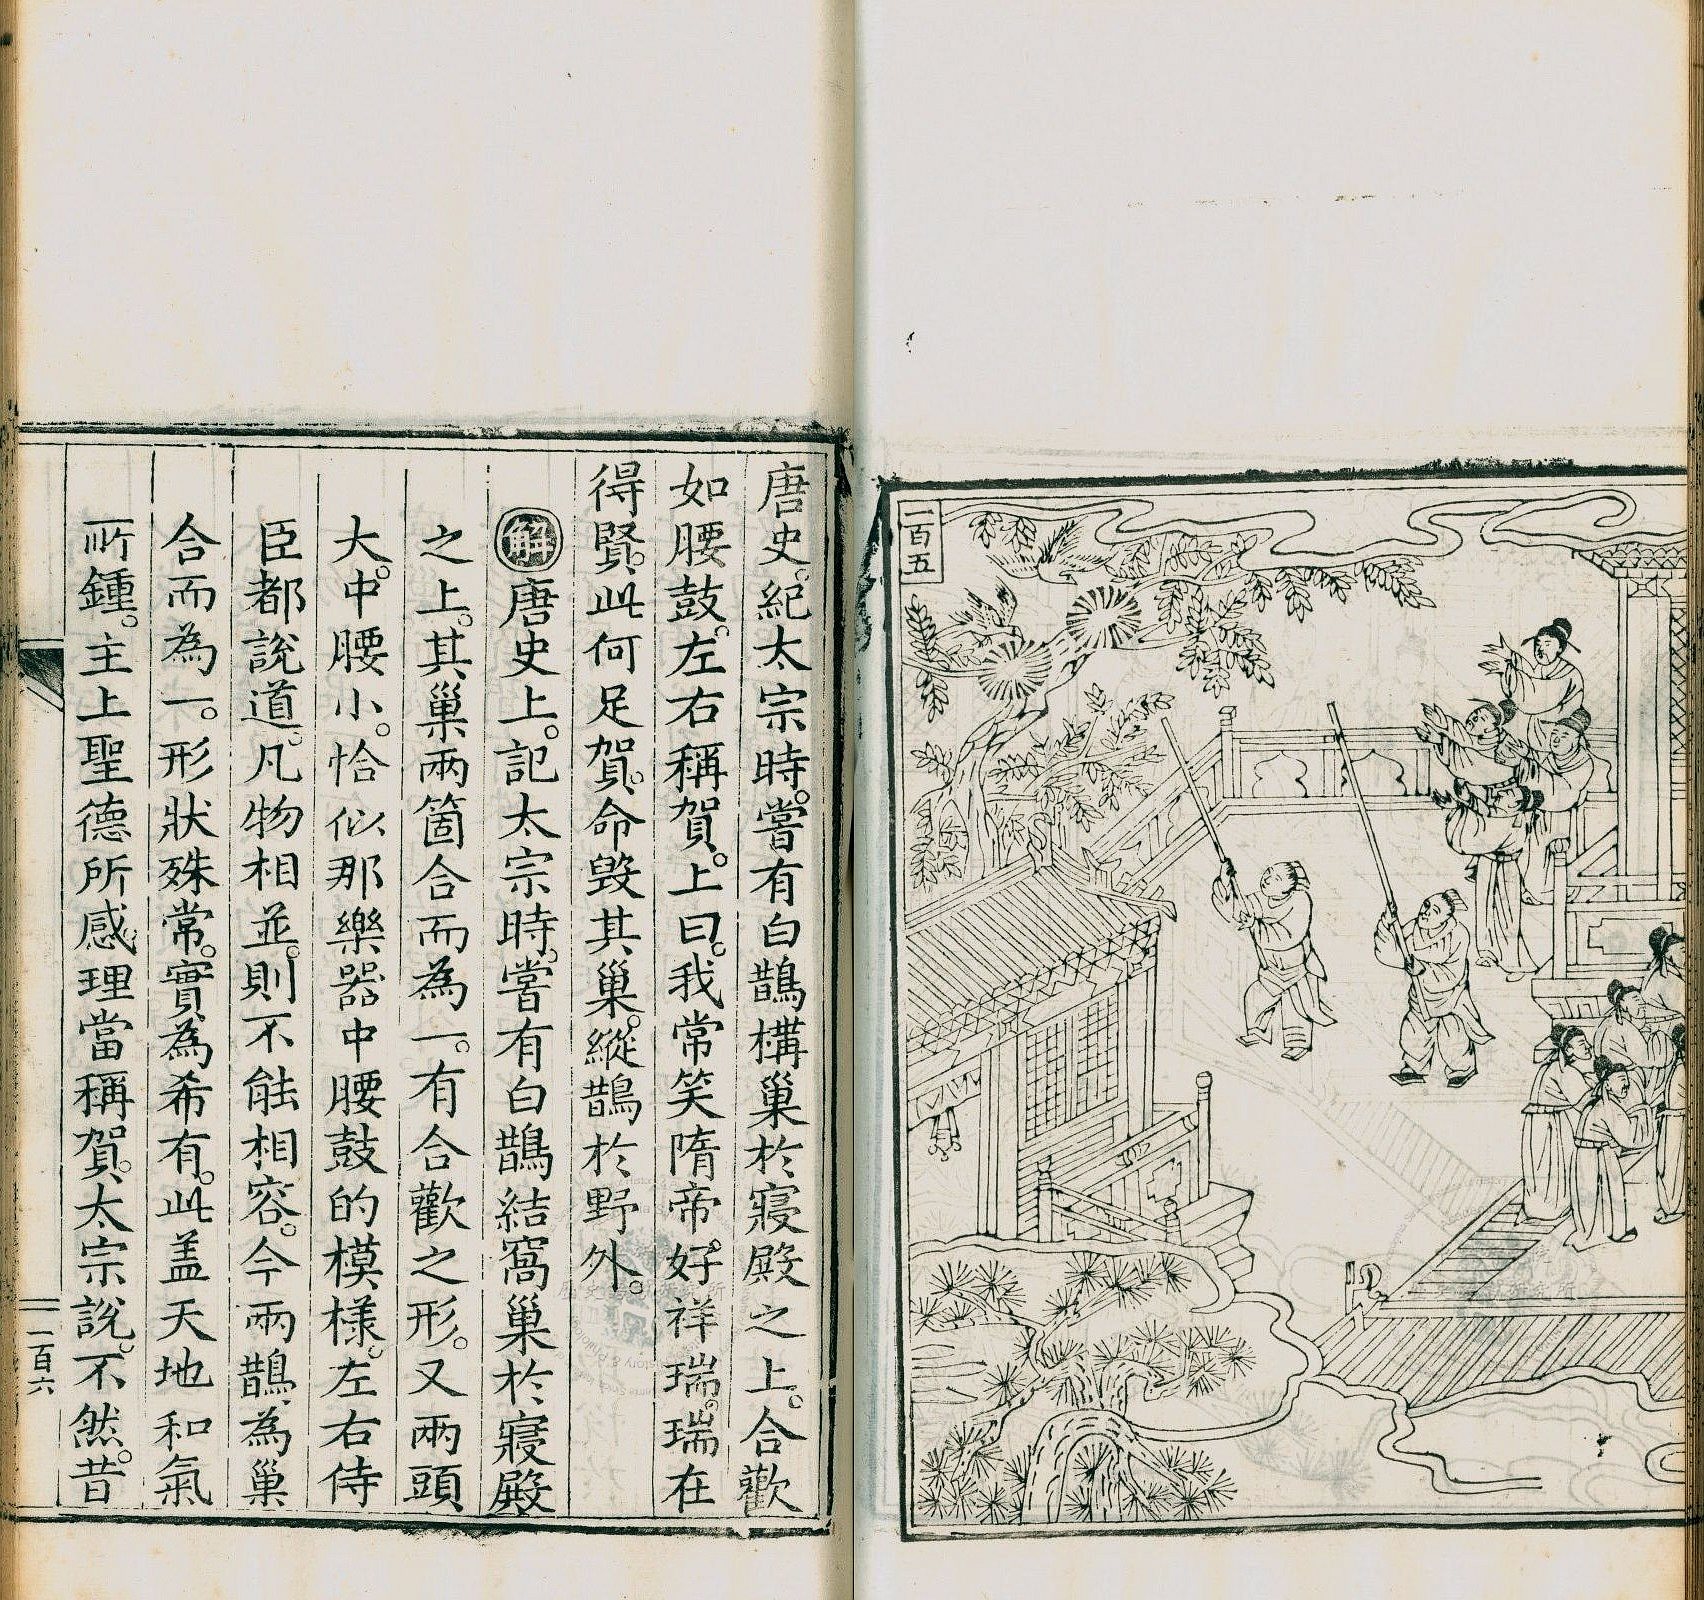 一百五
唐史紀太宗時。嘗有白鵲構巢於寢殿之上。合歡
如腰鼓。左右稱賀。上曰。我常笑隋帝。好祥瑞。瑞在
得賢。此何足賀。命毀其巢。縱鵲於野外。
解唐史上。記太宗時。嘗有白鵲結窩巢於寢殿
之上。其巢兩箇合而為一。有合歡之形。又兩頭
大。中腰小。恰似那樂器中腰鼓的模樣。左右侍
臣都說道。凡物相並。則不能相容。今兩鵲為巢
合而為一。形狀殊常。實為希有。此盖天地和氣
所鍾。主上聖德所感。理當稱賀。太宗說。不然。昔
一百六